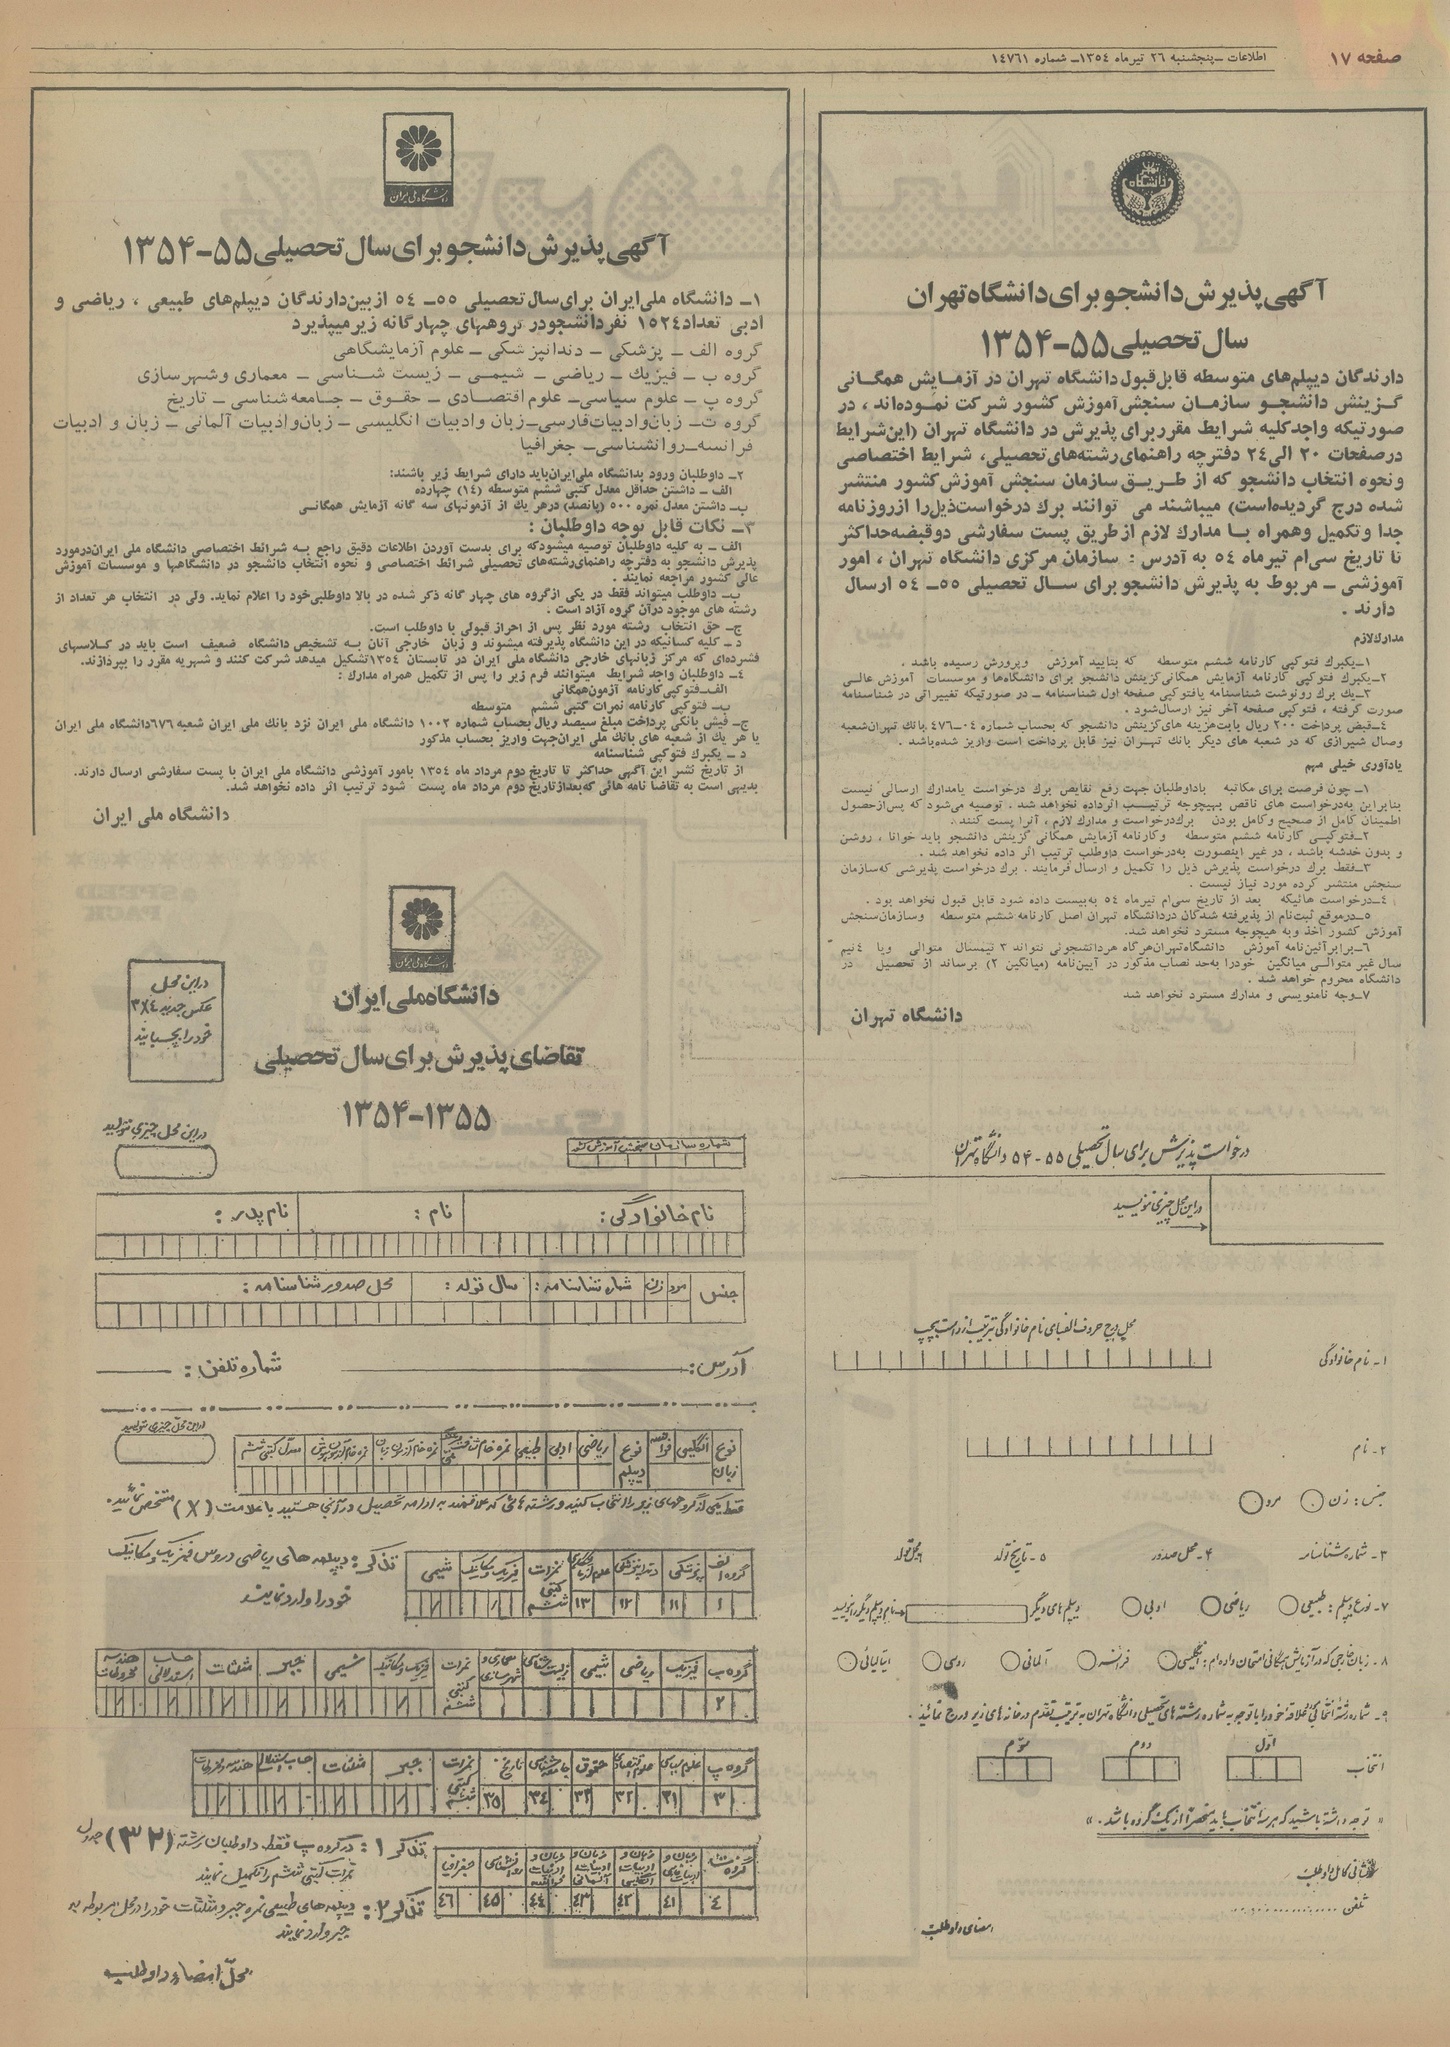 صفحه ۱۷
اطلاعات ـ پنجشنبه ۲۶ تیرماه ۱۳۵۴ـ شماره ۱۴۷۶۱
دانشگاه
آگهی پذیرش دانشجو برای دانشگاه تهران
سال تحصیلی ۵۵-۱۳۵۴
دارندگان دیپلم‌های متوسطه قابل قبول دانشگاه تهران در آزمایش همگانی
گزینش دانشجو سازمان سنجش آموزش کشور شرکت نموده‌اند ، در
صورتیکه واجد کلیه شرایط مقرر برای پذیرش در دانشگاه تهران (این شرایط
در صفحات ۲۰ الی ۲۴ دفترچه راهنمای رشته‌های تحصیلی، شرایط اختصاصی
و نحوه انتخاب دانشجو که از طریق سازمان سنجش آموزش کشور منتشر
شده درج گردیده‌است) میباشند می توانند برك درخواست ذیل را از روزنامه
جدا و تکمیل و همراه با مدارك لازم از طریق پست سفارشی دو قبضه حداکثر
تا تاریخ سی‌ام تیرماه ۵۴ به آدرس : سازمان مرکزی دانشگاه تهران ، امور
آموزشی ـ مربوط به پذیرش دانشجو برای سال تحصیلی ۵۵ـ ۵۴ ارسال
دارند .
مدارك لازم
۱ـ یکبرك فتوکپی کارنامه ششم متوسطه که بتایید آموزش و پرورش رسیده باشد .
۲ـ یکبرك فتوکپی کارنامه آزمایش همگانی گزینش دانشجو برای دانشگاه‌ها و موسسات آموزش عالی
۳ـ یك برك رونوشت شناسنامه یا فتوکپی صفحه اول شناسنامه ـ در صورتیکه تغییراتی در شناسنامه
صورت گرفته ، فتوکپی صفحه آخر نیز ارسال شود .
۴ـ قبض پرداخت ۲۰۰ ریال بابت هزینه های گزینش دانشجو که بحساب شماره ۰۴ـ۴۷۶ بانك تهران شعبه
وصال شیرازی که در شعبه های دیگر بانك تهران نیز قابل پرداخت است واریز شده باشد .
یادآوری خیلی مهم
۱ـ چون فرصت برای مکاتبه با داوطلبان جهت رفع نقایص برك درخواست یا مدارك ارسالی نیست
بنابراین به درخواست های ناقص بهیچوجه ترتیب اثر داده نخواهد شد . توصیه می‌شود که پس از حصول
اطمینان کامل از صحیح و کامل بودن برك درخواست و مدارك لازم ، آنرا پست کنند .
۲ـ فتوکپی کارنامه ششم متوسطه و کارنامه آزمایش همگانی گزینش دانشجو باید خوانا ، روشن
و بدون خدشه باشد ، در غیر اینصورت به درخواست داوطلب ترتیب اثر داده نخواهد شد .
۳ـ فقط برك درخواست پذیرش ذیل را تکمیل و ارسال فرمایند . برك درخواست پذیرشی که سازمان
سنجش منتشر کرده مورد نیاز نیست .
۴ـ درخواست هائیکه بعد از تاریخ سی‌ام تیرماه ۵۴ به پست داده شود قابل قبول نخواهد بود .
۵ـ در موقع ثبت‌نام از پذیرفته شدگان در دانشگاه تهران اصل کارنامه ششم متوسطه و سازمان سنجش
آموزش کشور اخذ و به هیچوجه مسترد نخواهد شد .
۶ـ برابر آئین‌نامه آموزش دانشگاه تهران هرگاه هر دانشجوئی نتواند ۳ نیمسال متوالی و یا ۴ نیم
سال غیر متوالی میانگین خود را به حد نصاب مذکور در آیین‌نامه (میانگین ۲) برساند از تحصیل در
دانشگاه محروم خواهد شد .
۷ـ وجه نامنویسی و مدارك مسترد نخواهد شد
دانشگاه تهران
درخواست پذیرش برای سال تحصیلی ۵۵-۵۴ دانشگاه تهران
در این محل چیزی ننویسید
محل درج حروف الفبای نام خانوادگی بترتیب از راست بچپ
۱- نام خانوادگی
۲- نام
جنس : زن مرد
۳- شماره شناسنامه ۴- محل صدور ۵- تاریخ تولد ۶- محل تولد
۷- نوع دیپلم : طبیعی ریاضی ادبی دیپلم‌های دیگر نام دیپلم دیگر را بنویسید
۸- زبان خارجی که در آزمایش همگانی امتحان داده‌ام : انگلیسی فرانسه آلمانی روسی ایتالیائی
۹- شماره رشته انتخابی علاقه خود را با توجه به شماره رشته‌های تحصیلی دانشگاه تهران به ترتیب تقدم در خانه‌های زیر درج نمائید .
انتخاب اول دوم سوم
« توجه داشته باشید که هر سه انتخاب باید منحصراً از یک گروه باشد . »
نشانی کامل داوطلب
تلفن
امضای داوطلب
دانشگاه ملی ایران
آگهی پذیرش دانشجو برای سال تحصیلی ۵۵-۱۳۵۴
۱ـ دانشگاه ملی ایران برای سال تحصیلی ۵۵ـ ۵۴ از بین دارندگان دیپلم‌های طبیعی ، ریاضی و
ادبی تعداد ۱۵۲۴ نفر دانشجو در گروههای چهارگانه زیر میپذیرد
گروه الف ـ پزشکی ـ دندانپزشکی ـ علوم آزمایشگاهی
گروه ب ـ فیزیك ـ ریاضی ـ شیمی ـ زیست شناسی ـ معماری و شهرسازی
گروه پ ـ علوم سیاسی ـ علوم اقتصادی ـ حقوق ـ جامعه شناسی ـ تاریخ
گروه ت ـ زبان و ادبیات فارسی ـ زبان و ادبیات انگلیسی ـ زبان و ادبیات آلمانی ـ زبان و ادبیات
فرانسه ـ روانشناسی ـ جغرافیا
۲ـ داوطلبان ورود بدانشگاه ملی ایران باید دارای شرایط زیر باشند:
الف ـ داشتن حداقل معدل کتبی ششم متوسطه (۱۴) چهارده
ب ـ داشتن معدل نمره ۵۰۰ (پانصد) در هر یك از آزمونهای سه گانه آزمایش همگانی
۳ـ نکات قابل توجه داوطلبان :
الف ـ به کلیه داوطلبان توصیه میشود که برای بدست آوردن اطلاعات دقیق راجع به شرائط اختصاصی دانشگاه ملی ایران در مورد
پذیرش دانشجو به دفترچه راهنمای رشته‌های تحصیلی شرائط اختصاصی و نحوه انتخاب دانشجو در دانشگاهها و موسسات آموزش
عالی کشور مراجعه نمایند .
ب ـ داوطلب میتواند فقط در یکی از گروه های چهار گانه ذکر شده در بالا داوطلبی خود را اعلام نماید. ولی در انتخاب هر تعداد از
رشته های موجود در آن گروه آزاد است .
ج ـ حق انتخاب رشته مورد نظر پس از احراز قبولی با داوطلب است.
د ـ کلیه کسانیکه در این دانشگاه پذیرفته میشوند و زبان خارجی آنان به تشخیص دانشگاه ضعیف است باید در کلاسهای
فشرده‌ای که مرکز زبانهای خارجی دانشگاه ملی ایران در تابستان ۱۳۵۴ تشکیل میدهد شرکت کنند و شهریه مقرر را بپردازند.
۴ـ داوطلبان واجد شرایط میتوانند فرم زیر را پس از تکمیل همراه مدارك :
الف ـ فتوکپی کارنامه آزمون همگانی
ب ـ فتوکپی کارنامه نمرات کتبی ششم متوسطه
ج ـ فیش بانکی پرداخت مبلغ سیصد ریال بحساب شماره ۱۰۰۲ دانشگاه ملی ایران نزد بانك ملی ایران شعبه ۶۷۶ دانشگاه ملی ایران
یا هر یك از شعبه های بانك ملی ایران جهت واریز بحساب مذکور
د ـ یکبرك فتوکپی شناسنامه
از تاریخ نشر این آگهی حداکثر تا تاریخ دوم مرداد ماه ۱۳۵۴ بامور آموزشی دانشگاه ملی ایران با پست سفارشی ارسال دارند.
بدیهی است به تقاضا نامه هائی که بعد از تاریخ دوم مرداد ماه پست شود ترتیب اثر داده نخواهد شد.
دانشگاه ملی ایران
دانشگاه ملی ایران
دانشگاه ملی ایران
تقاضای پذیرش برای سال تحصیلی
۱۳۵۴-۱۳۵۵
در این محل
عکس جدید ۴×۳
خود را بچسبانید
در این محل چیزی ننویسید
شماره سازمان سنجش آموزش کشور
نام خانوادگی : نام : نام پدر :
جنس مرد زن شماره شناسنامه : سال تولد : محل صدور شناسنامه :
آدرس : شماره تلفن :
در این محل چیزی ننویسید
نوع زبان انگلیسی فرانسه نوع دیپلم ریاضی ادبی طبیعی معدل کتبی ششم
فقط یکی از گروههای زیر را انتخاب کنید و رشته هائی که علاقمند به ادامه تحصیل در آنجا هستید با علامت (X) مشخص نمائید .
گروه الف پزشکی دندانپزشکی علوم آزمایشگاهی نمرات کتبی ششم فیزیک و مکانیک شیمی
۱ ۱۱ ۱۲ ۱۳
تذکر : دیپلمه های ریاضی دروس فیزیک و مکانیک
خود را وارد نمایند
گروه ب فیزیک ریاضی شیمی زیست شناسی معماری و شهرسازی نمرات کتبی ششم فیزیک و مکانیک شیمی جبر مثلثات حساب استدلالی هندسه و مخروطات
۲
گروه پ علوم سیاسی علوم اقتصادی حقوق جامعه شناسی تاریخ نمرات کتبی ششم جبر مثلثات حساب استدلالی هندسه و مخروطات
۳ ۳۱ ۳۲ ۳۳ ۳۴ ۳۵
تذکر ۱ : در گروه پ فقط داوطلبان رشته (۳۲) جدول
نمرات کتبی ششم را تکمیل نمایند
گروه ت زبان و ادبیات فارسی زبان و ادبیات انگلیسی زبان و ادبیات آلمانی زبان و ادبیات فرانسه روانشناسی جغرافیا
۴ ۴۱ ۴۲ ۴۳ ۴۴ ۴۵ ۴۶
تذکر ۲ : دیپلمه های طبیعی نمره جبر و مثلثات خود را در محل مربوطه به
جبر وارد نمایند
محل امضاء داوطلب